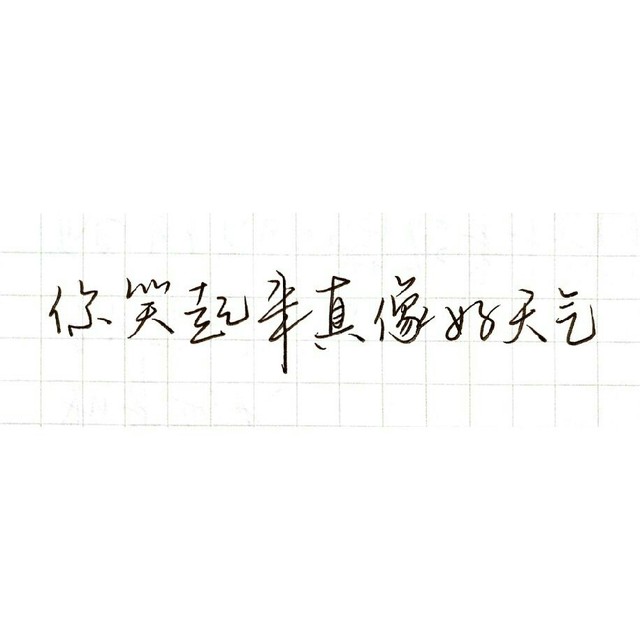 你笑起来真像好天气